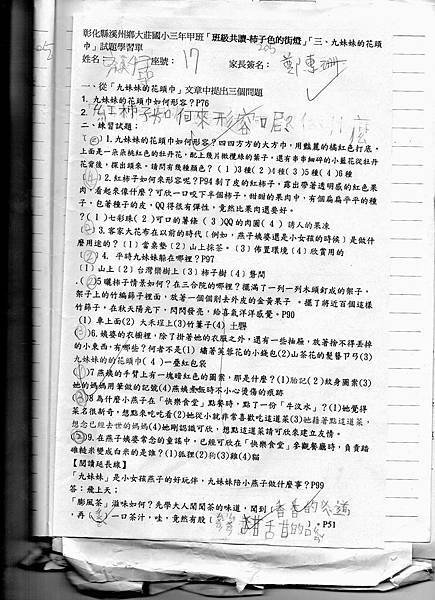 彰化縣溪州鄉大莊國小三年甲班「班級共讀-柿子色的街燈」「三、九妹妹的花頭
巾」試題學習單
姓名： 座號：17 家長簽名：鄭惠珊
一、從「九妹妹的花頭巾」文章中提出三個問題
1. 九妹妹的花頭巾如何形容？P76
2. 紅柿子如何來形容呢？
二、練習試題：
1. 九妹妹的花頭巾如何形容？四四方方的大方巾，用豔麗的橘紅色打底，
上面是一朵朵桃紅色的牡丹花，配上幾片橄欖綠的葉子，還有串串細碎的小藍花從牡丹
花背後，探出頭來。請問有幾種顏色？(1)3種(2)4種(3)5種(4)6種
(4)2. 紅柿子如何來形容呢？P94剝了皮的紅柿子，露出帶著透明感的紅色果
肉，看起來像什麼？可放一口咬下半個柿子，甜甜的果肉中，有個扁扁平平的種
子，包著種子的皮，QQ得很有彈性，竟然比果肉還要好。
？(1)七彩珠(2)可口的薯條(3)QQ的肉圓(4)誘人的果凍
3. 客家大花布在以前的時代(例如，燕子姨婆還是小女孩的時候)是做什
麼用途的？(1)當桌墊(2)山上採茶。(3)佈置環境(4)欣賞用的
(2)4. 平時九妹妹躲在哪裡？P97
(1)山上(2)台灣欒樹上(3)柿子樹(4)房間
(2)5曬柿子情景如何？在三合院的哪裡？擺滿了一列一列木頭釘成的架子。
架子上的竹編篩子裡面，放著一個個削去外皮的金黃果子。擺了將近百個這樣
竹篩子，在秋天陽光下，閃閃發亮，給喜氣洋洋感覺。P90
(1)車上面(2)大禾埕上(3)竹簍子(4)土礱
(3)6. 姨婆的衣櫥裡，除了掛著她的衣服之外，還有一些抽屜，放著捨不得丟掉
的小東西，有哪些？何者不是(1)繡著芙蓉花的小錢包(2)山茶花的髮簪ㄗㄢ(3)
九妹妹的的花頭巾(4)一疊紅包袋
(1)7燕燕的手臂上有一塊暗紅色的圖案，那是什麼？(1)胎記(2)紋身圖案(3)
她的媽媽用筆做的記號(4)燕燕煮飯時不小心燙傷的痕跡
8為什麼小燕子在「快樂食堂」點餐時，點了一份「牛汶水」？(1)她覺得
菜名很新奇，想點來吃吃看(2)她從小就非常喜歡吃這道菜(3)她藉著點這道菜，
想念已經去世的媽媽(4)她剛認識可欣，想點這道菜請可欣來建立友情。
(2)9. 在燕子姨婆常念的童謠中，已經可欣在「快樂食堂」參觀餐廳時，負責踏
碓糙米變成白米的是誰？(1)狐狸(2)狗(3)雞(4)貓
【閱讀延長線】
「九妹妹」是小女孩燕子的好玩伴，九妹妹陪小燕子做什麼事？P99
答：飛上天；
「膨風茶」滋味如何？先學大人聞聞茶的味道，聞到，香香的
，再一口茶汁，哇，竟然有股 P51